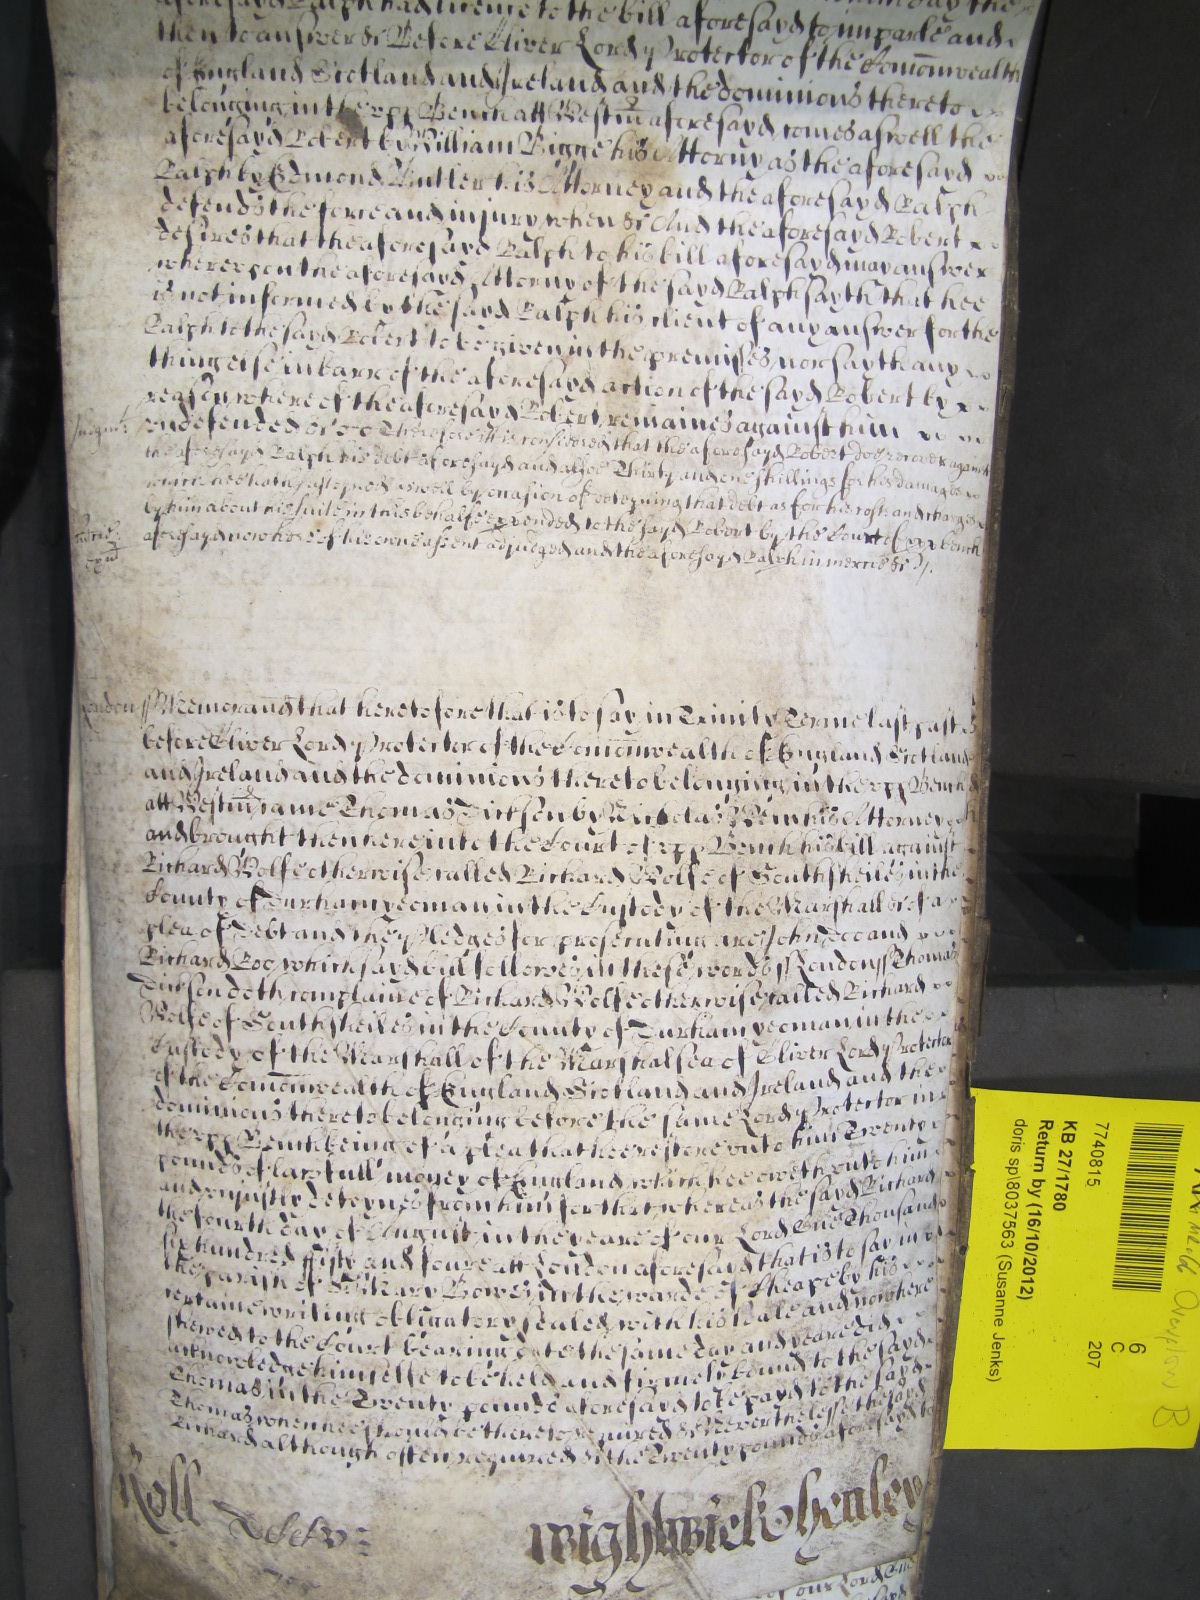 aforesayd Ralph had licence to the bill aforesayd to imparle and
then to answer &c Before Oliver Lord Protector of the Comonwealth
of England Scotland and Ireland and the dominions thereto
belonging in the vpp Bench att Westm aforesayd comes aswell the
aforesayd Robert by William Bigge his Attorny as the aforesayd
Ralph by Edmond Butler his Attorney and the aforesayd Ralph
defends the force and injury when &c And the aforesayd Robert
desires that the aforesayd Ralph to his bill aforesayd may answer
wherevpon the aforesayd Attorny of the sayd Ralph sayth that hee
is not informed by the sayd Ralph his client of any answer for the
Ralph to the sayd Robert to be given in the premisses nor sayth any
thing else in barr of the aforesayd action of the sayd Robert by
reason whereof the aforesayd Robert remaines against him
vndefended &c Therefore it is considered that the aforesayd Robert doe recover against
the aforesayd Ralph his debt aforesayd and alsoe Thirty and one shillings for his damages
which hee hath susteyned aswell by occasion of deteyning that debt as for his costs and charges
by him about his suite in this behalfe expended to the sayd Robert by the Court of vpp bench
aforesayd now here of his owne assent adjudged and the aforesayd Ralph in mercie &c
London ss Memorand that heretofore that is to say in Trinity Terme last past
before Oliver Lord Protector of the Comonwealth of England Scotland
and Ireland and the dominions thereto belonging in the vpp Bench
att Westm came Thomas Dickson by Nicholas his Attorney
and brought then here into the Court of vpp Bench his bill against
Richard Wolfe otherwise called Richard Wolfe of Southsheiles in the
County of Durham yeoman in the Custody of the Marshall &c of a
plea of Debt and they Pledges for prosecuting are John Doo and
Richard Roo which sayd bill followes in these words ss London ss Thomas
Dickson doth complaine of Richard Wolfe otherwise called Richard
Wolfe of Southsheiles in the County of Durham yeoman in the
Custody of the Marshall of the Marshalsea of Oliver Lord Protector
of the Comonwealth of England Scotland and Ireland and the
dominions thereto belonging before the same Lord Protector in
the vpp Bench being of a plea that hee restore vnto him Twenty
pounds of lawfull money of England which hee oweth vnto him
and vnjustly deteynes from him for that whereas the sayd Richard
the fourth day of August in the yeare of our Lord One Thousand
six hundred fifty and foure att London aforesayd that is to say in
the parish of St Mary Bowe in the warde of Cheape by his
certaine writing obligatory sealed with his seale and now here
shewed to the Court bearing date the same day and yeare did
acknowledge himselfe to be held and firmely bound to the sayd
Thomas in the Twenty pounds aforesayd to be payd to the sayd
Thomas when hee should be thereto required &c Neverthelesse the sayd
Richard although often required &c the Twenty pounds aforesayd to
Roll
Wightwick Henley
of our Lord One
7740815
KB 27/1780
Return by (16/10/2012)
doris sp\8037563 (Susanne Jenks)
6
C
207
B